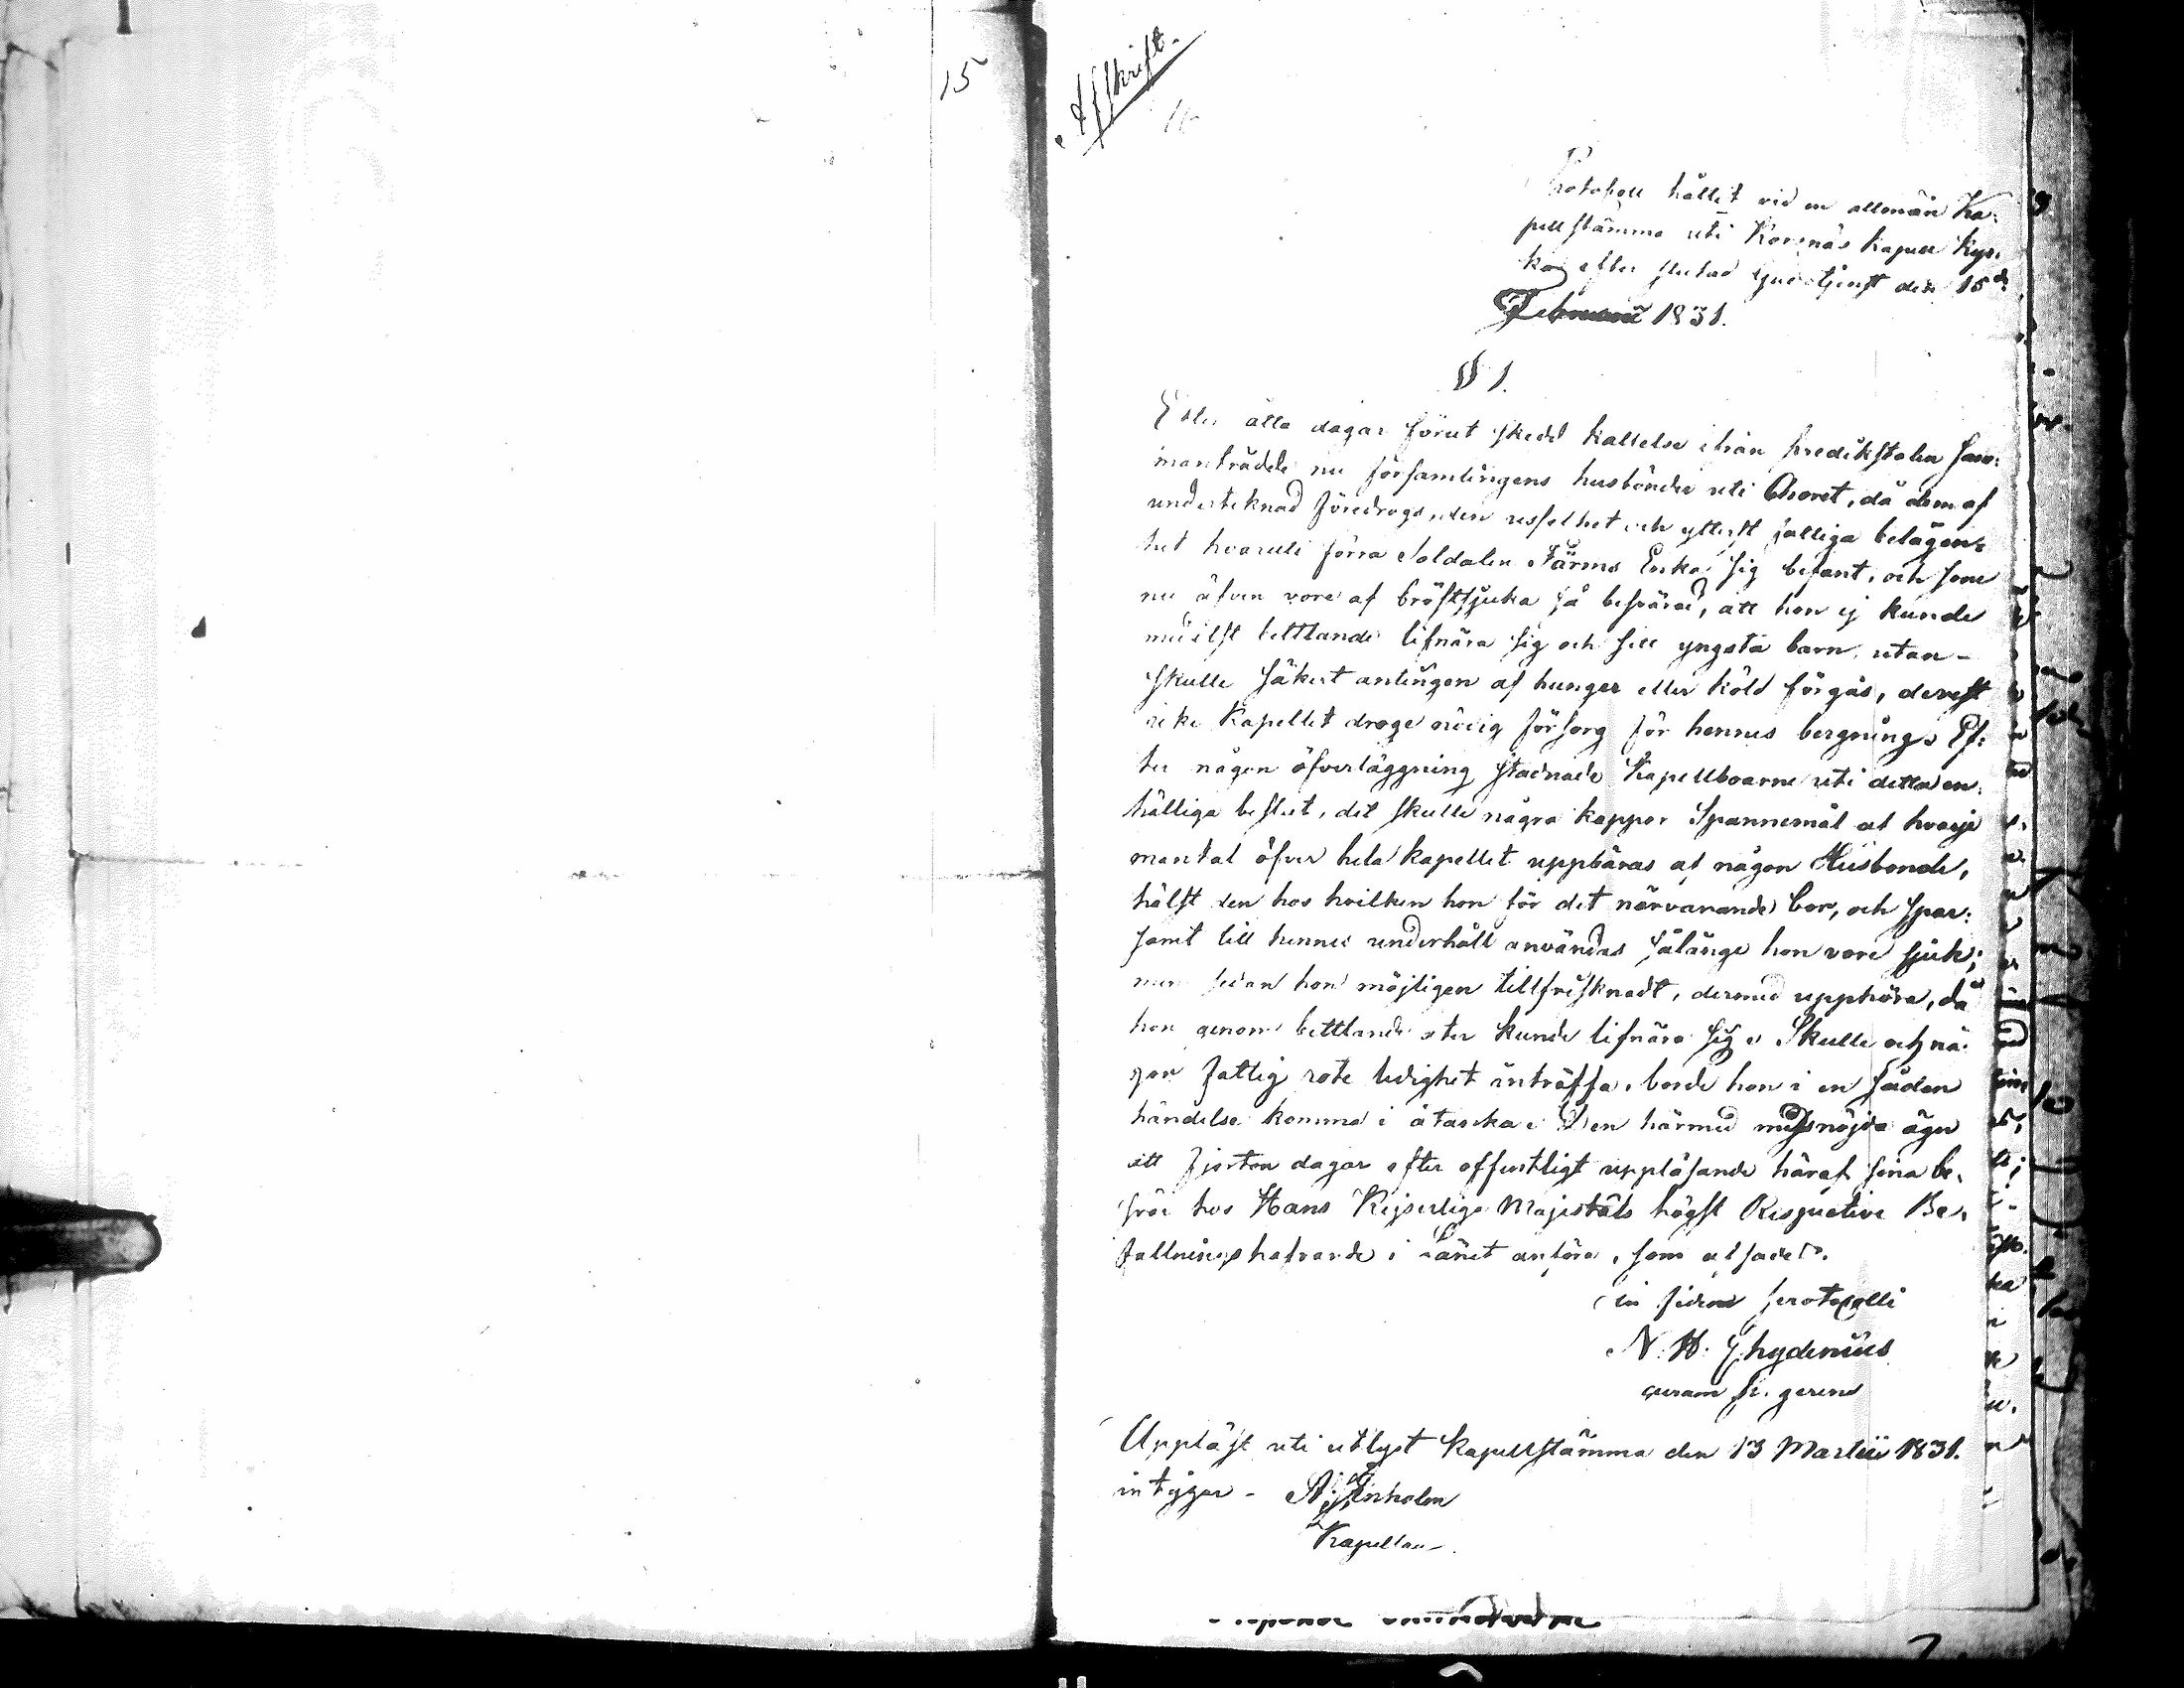 15
Afskrift.
16
Protokoll hållit vid en allmän Ka:
pellstämma uti Korsnäs Kapell Kyr:
ka efter slutad Gudstjenst den 15de
Februarii 1831.
§ 1.
Efter åtta dagar förut skedd kallelse ifrån predikstolen sam:
manträdde nu församlingens husbönder uti Choret, då dem af
underteknad föredrogs, den uselhet och ytterst fattiga belägen:
het hvaruti förra Soldaten Färms Enka sig befant, och som
nu äfven vore af bröstsjuka så besvärad, att hon ej kunde
medelst bettlande lifnära sig och sitt yngsta barn, utan
skulle säkert antingen af hunger eller köld förgås, derest
icke Kapellet droge nödig försorg för hennes bergning. Ef:
ter någon öfverläggning stadnade Kapellboarne uti detta en:
hälliga beslut, det skulle några kappor Spannemål af hvarje
mantal öfver hela kapellet uppbäras af någon Husbonde,
hälst den hos hvilken hon för det närvarande bor, och spar:
samt till hennes underhåll användas sålänge hon vore sjuk;
men sedan hon möjligen tillfrisknadt, dermed upphöra, då
hon genom bettlande åter kunde lifnära sig. Skulle och nå:
gon fattig rote ledighet inträffa, borde hon i en sådan
händelse komma i åtanka. Den härmed missnöjda äger
att fjorton dagar efter offentligt uppläsande häraf sina be:
svär hos Hans Kejserliga Majestäts högst Respective Be:
fallningshafvande i Länet anföra, som utsades.
in fidem protocolli
N. H. Chydenius
curam p. gerens
Uppläst uti utlyst kapellstämma den 13 Martii 1831.
intygar - A:
Kapellan